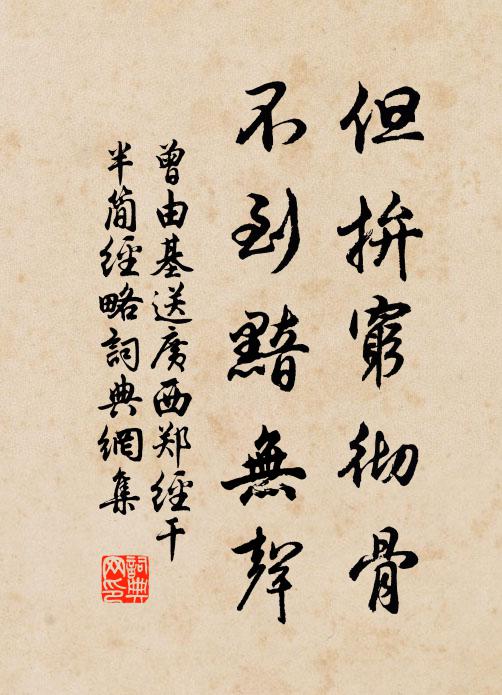 但拚窮彻骨
不到黯無聲
曾由基送廣西郑經干
半简經略詞典網集
詞典网印